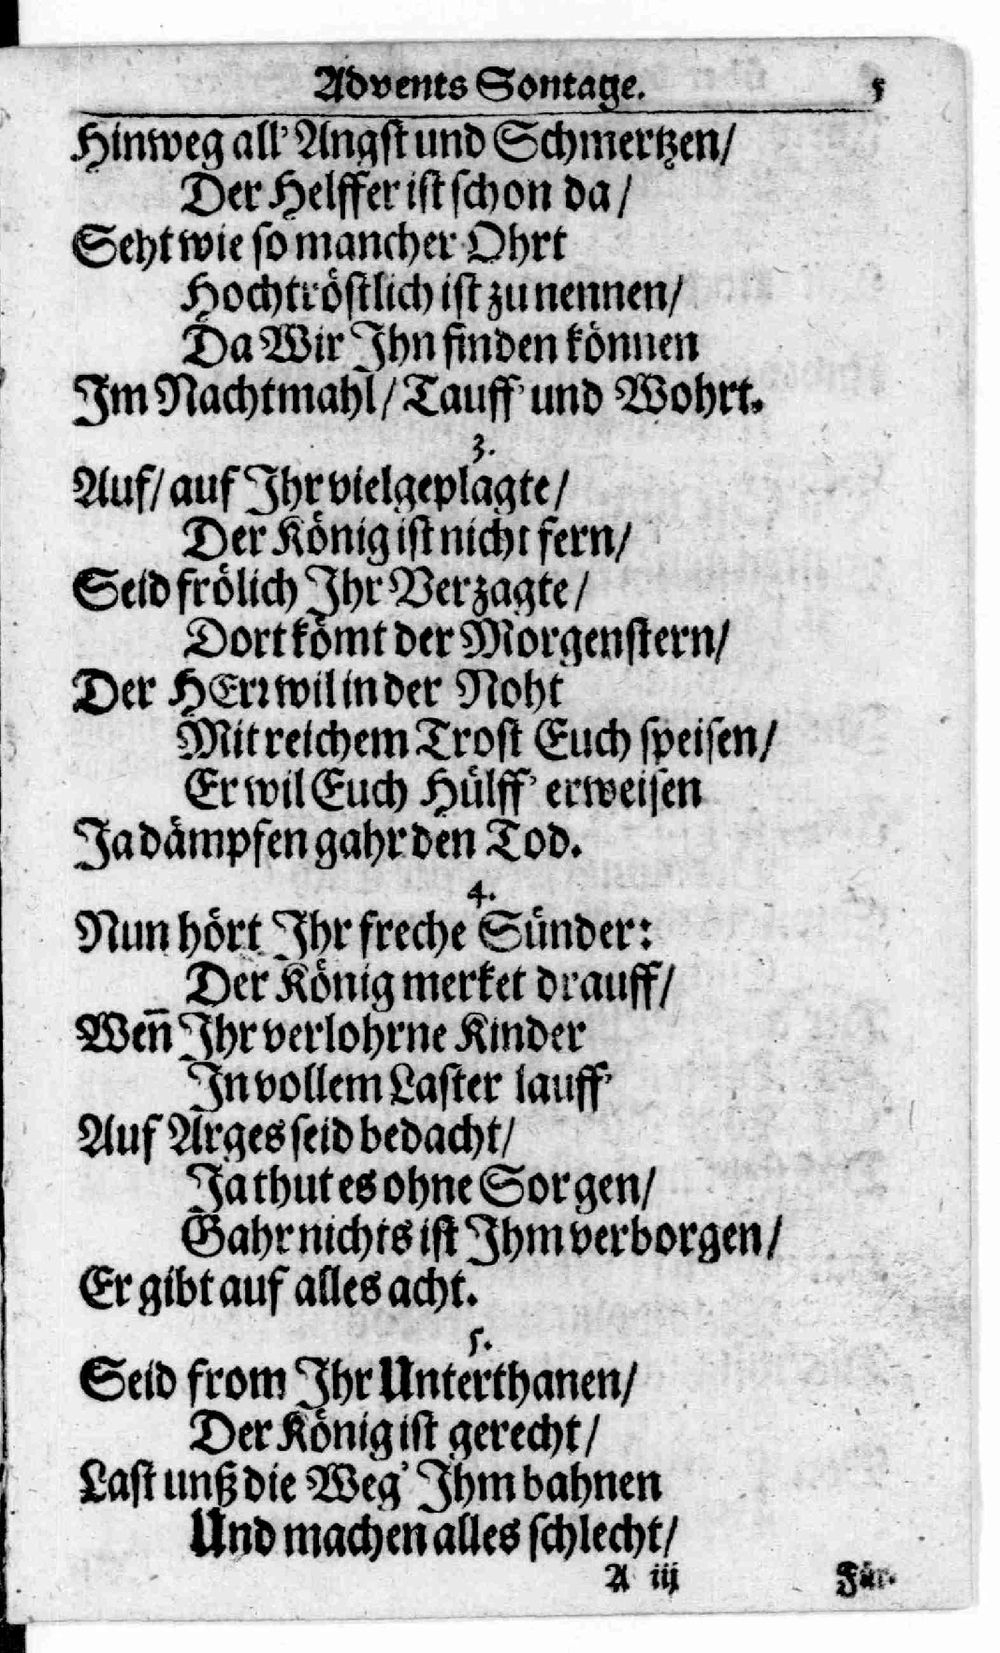 Advents Sontage. 5
Hinweg all' Angst und Schmertzen/
Der Helffer ist schon da/
Seht wie so mancher Ohrt
Hochtröstlich ist zu nennen/
Da Wir Ihn finden können
Im Nachtmahl/ Tauff' und Wohrt.
3.
Auf/ auf Ihr vielgeplagte/
Der König ist nicht fern/
Seid frölich Ihr Verzagte/
Dort kömt der Morgenstern/
Der HErr wil in der Noht
Mit reichem Trost Euch speisen/
Er wil Euch Hülff' erweisen
Ja dämpfen gahr den Tod.
4.
Nun hört Ihr freche Sünder:
Der König merket drauff/
Wen̄ Ihr verlohrne Kinder
In vollem Laster lauff'
Auf Arges seid bedacht/
Ja thut es ohne Sorgen/
Gahr nichts ist Ihm verborgen/
Er gibt auf alles acht.
5.
Seid from Ihr Unterthanen/
Der König ist gerecht/
Last unß die Weg' Ihm bahnen
Und machen alles schlecht/
A iij Für-